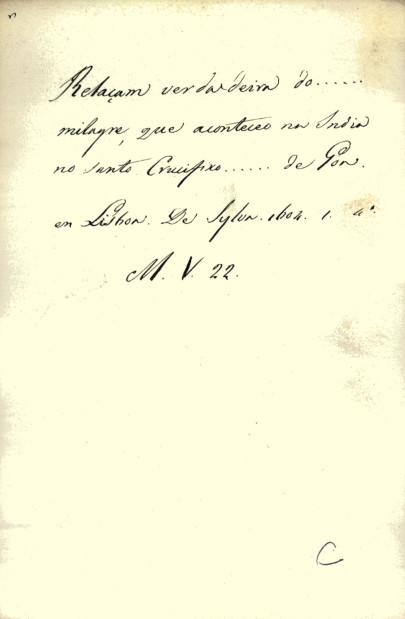 Relaçam verdadeira do......
milagre, que aconteceo na India
no santo Crucifixo...... de Goa.
en Lisboa. De Sylva. 1604. 1. 4º.
M. V. 22.
C